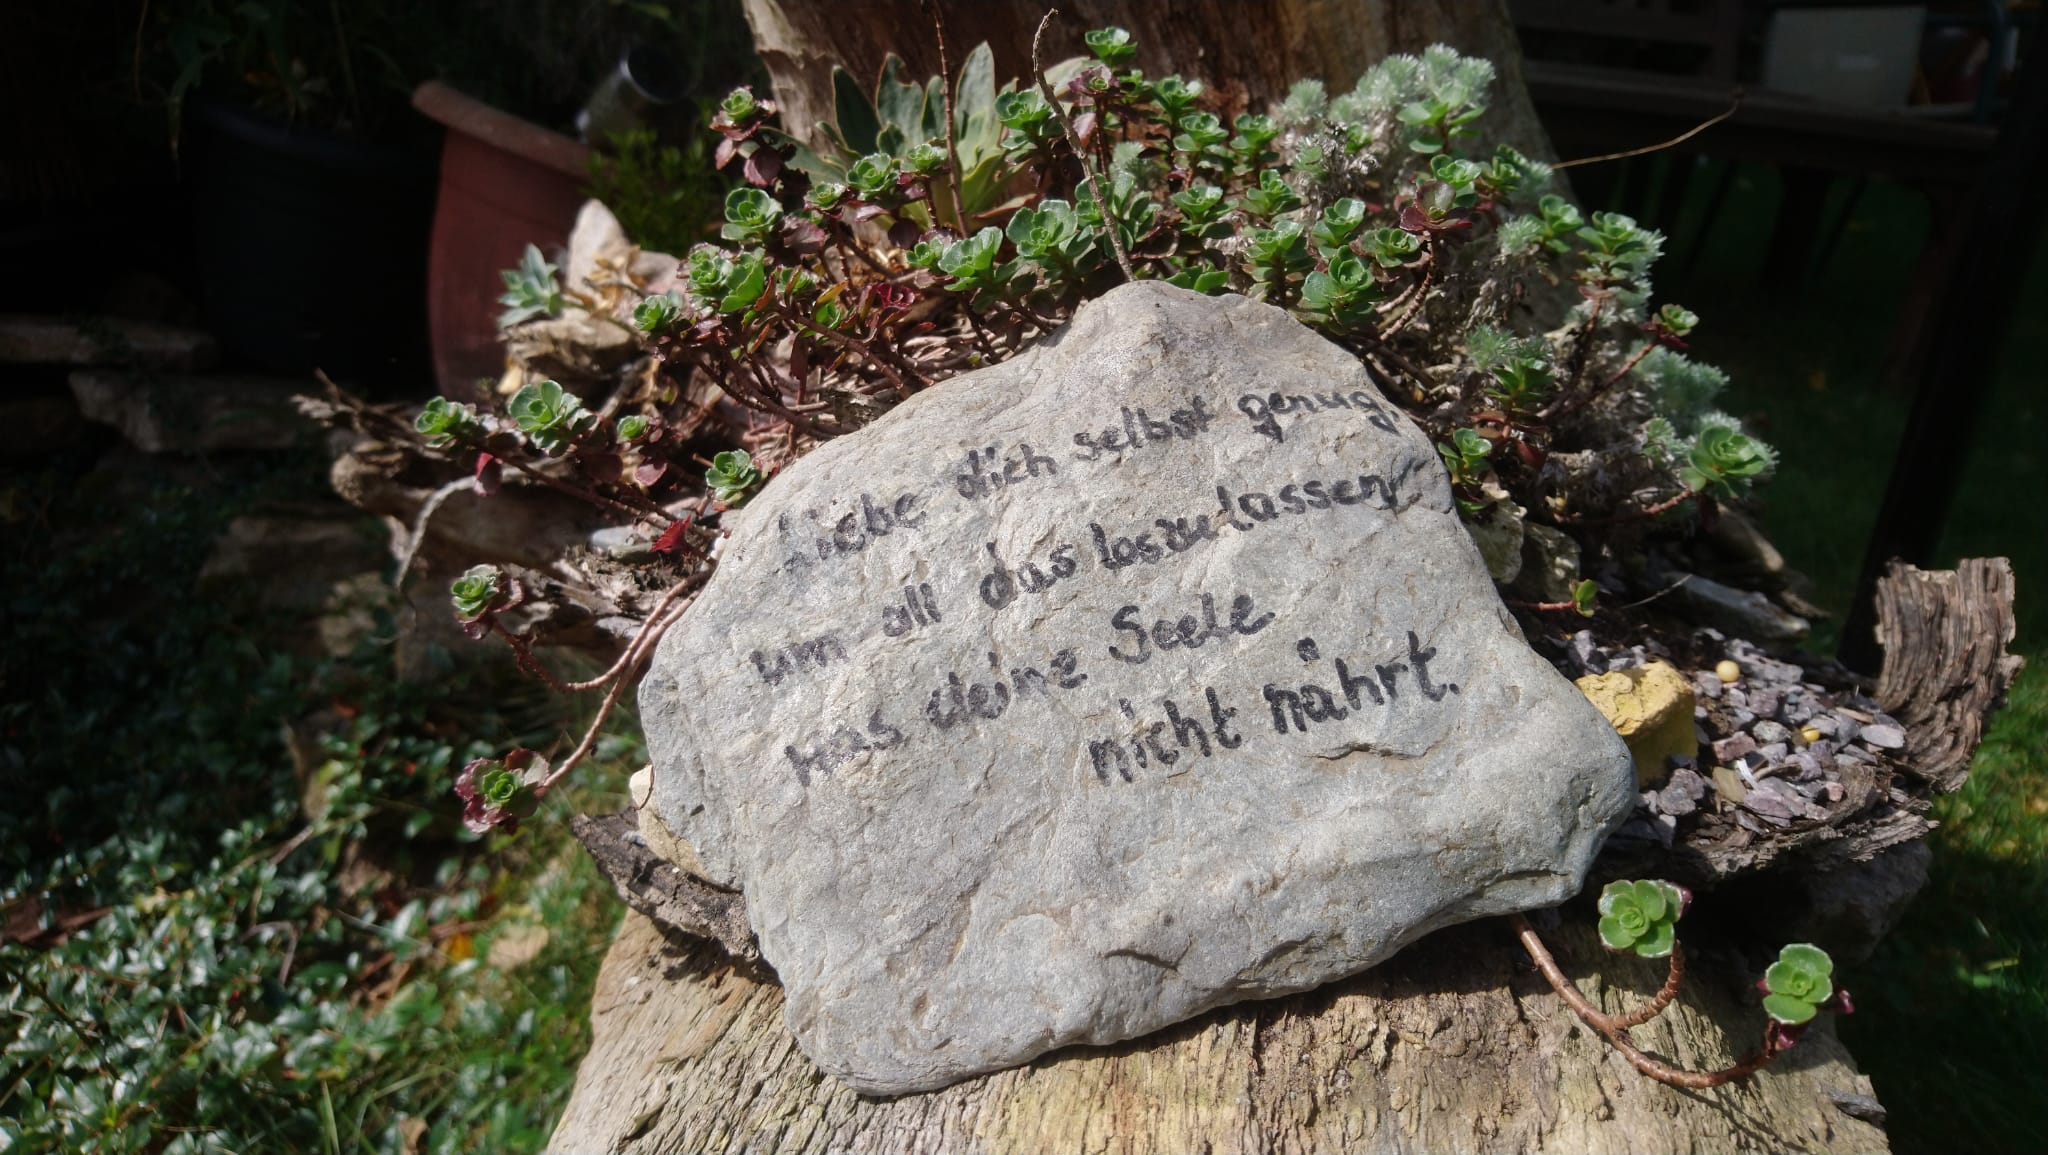 Liebe dich selbst genug,
um all das loszulassen
was deine Seele
nicht nährt.